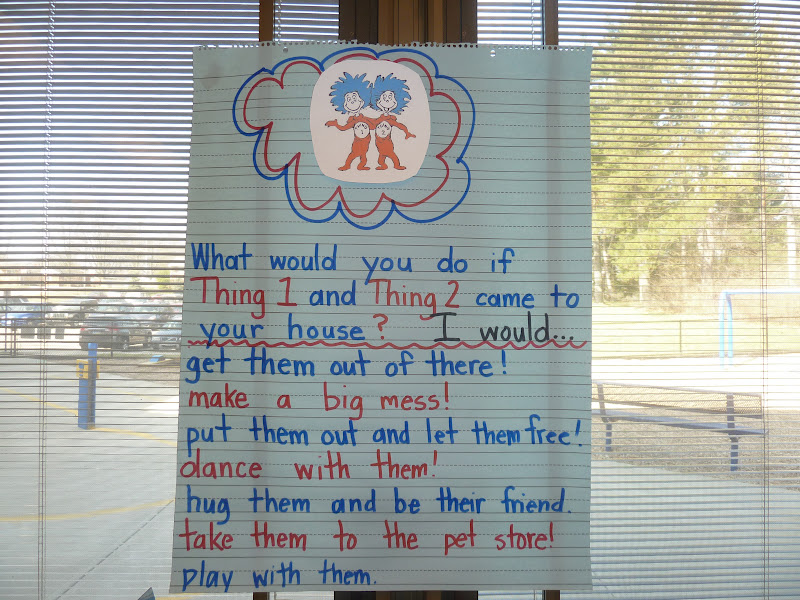 What would you do if
Thing 1 and Thing 2 came to
your house? I would...
get them out of there!
make a big mess!
put them out and let them free!
dance with them!
hug them and be their friend.
take them to the pet store!
play with them.